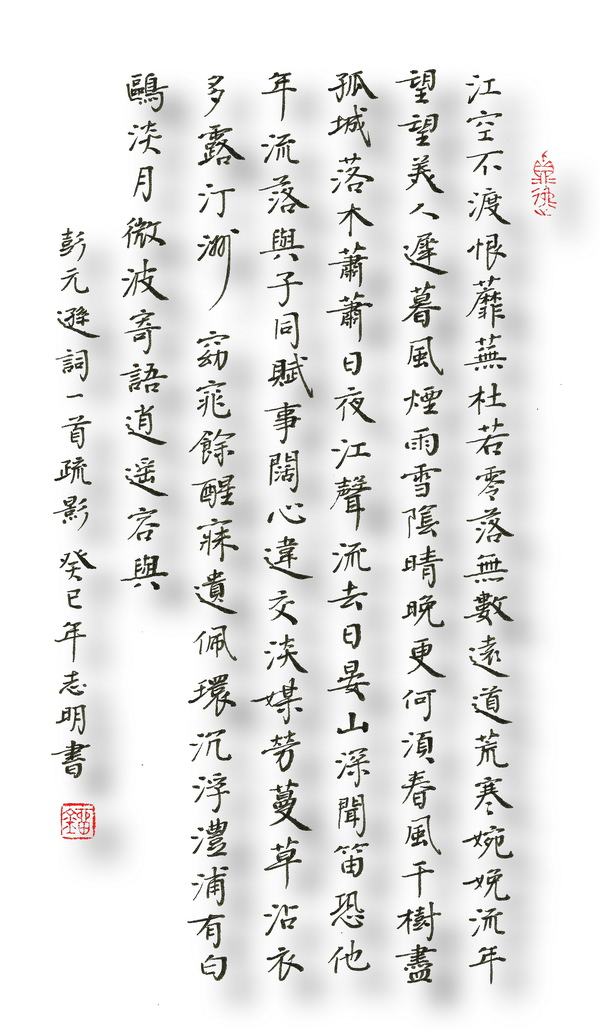 江空不渡恨蘼蕪杜若零落無數遠道荒寒婉娩流年
望望美人遲暮風煙雨雪陰晴晚更何須春風千樹盡
孤城落木蕭蕭日夜江聲流去日晏山深聞笛恐他
年流落與子同賦事闊心違交淡媒勞蔓草沾衣
多露汀洲窈窕餘醒寐遺佩環沉浮澧浦有白
鷗淡月微波寄語逍遥容與
彭元遜詞一首疏影癸巳年志明書